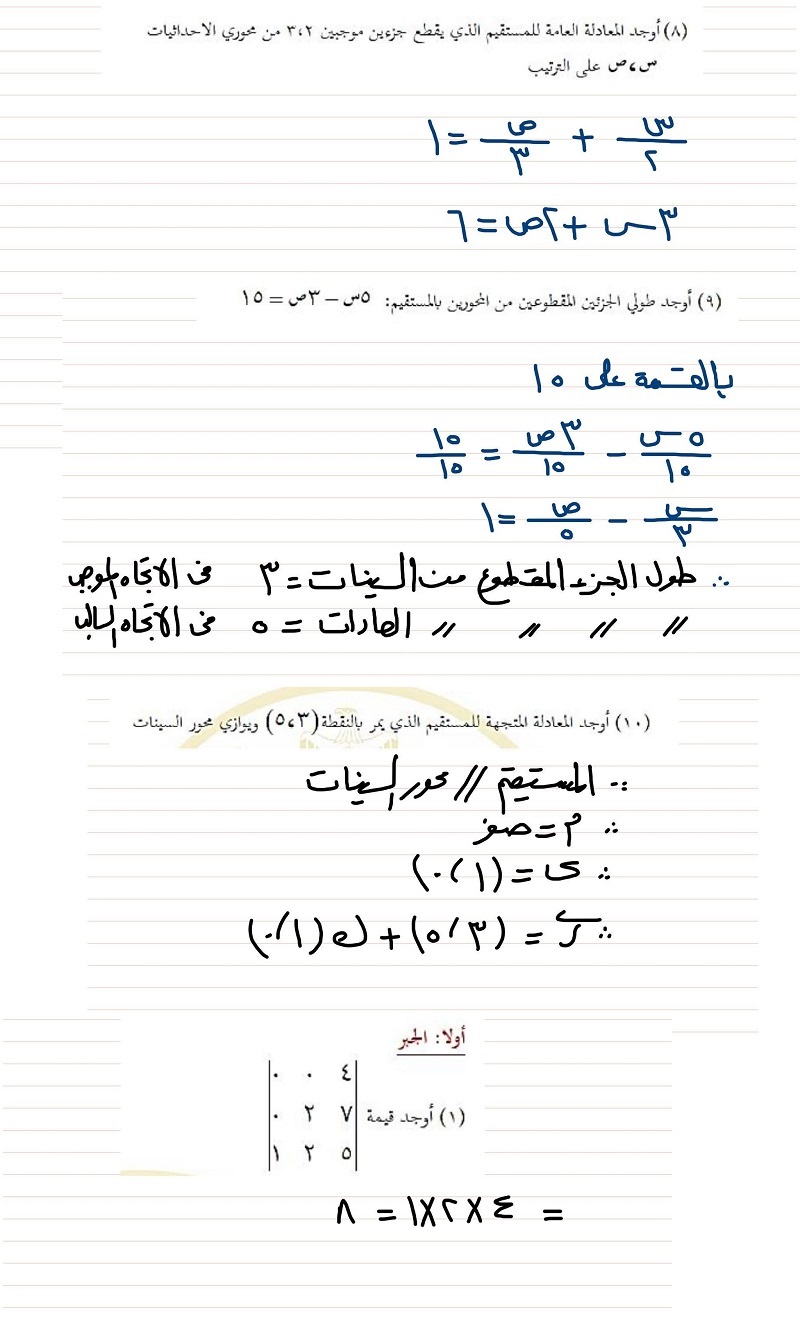 (٨) أوجد المعادلة العامة للمستقيم الذي يقطع جزءين موجبين ٣،٢ من محوري الاحداثيات
س ، ص على الترتيب
س/٢ + ص/٣ = ١
٣س + ٢ص = ٦
(٩) أوجد طولي الجزئين المقطوعين من المحورين بالمستقيم: ٥س − ٣ص = ١٥
بالقسمة على ١٥
٥س/١٥ − ٣ص/١٥ = ١٥/١٥
س/٣ − ص/٥ = ١
∴ طول الجزء المقطوع من السينات = ٣ فى الاتجاه الموجب
〃 〃 〃 〃 الصادات = ٥ فى الاتجاه السالب
(١٠) أوجد المعادلة المتجهة للمستقيم الذي يمر بالنقطة (٥،٣) ويوازي محور السينات
∵ المستقيم // محور السينات
∴ م = صفر
∴ ى = (١ ، ٠)
∴ ر = (٣ ، ٥) + ك (١ ، ٠)
أولا: الجبر
٤ ٠ ٠
(١) أوجد قيمة ٧ ٢ ٠
٥ ٢ ١
= ٤ × ٢ × ١ = ٨